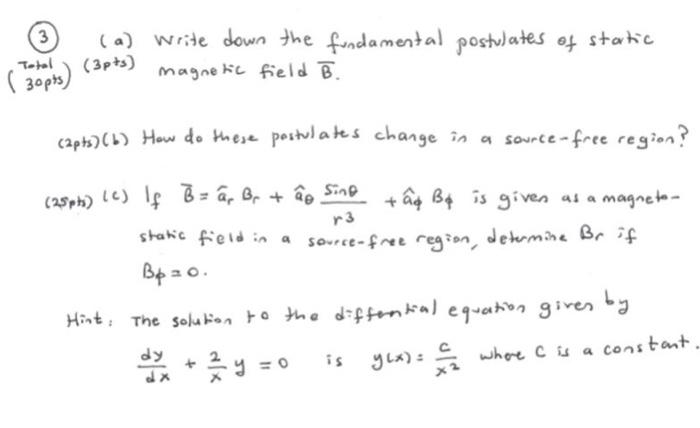 ③ (a) Write down the fundamental postulates of static
(Total 30pts) (3pts) magnetic field B̅.
(2pts)(b) How do these postulates change in a source-free region?
(25pts) (c) If B̅ = âr Br + âθ Sinθ/r3 + âϕ Bϕ is given as a magneto-
static field in a source-free region, determine Br if
Bϕ = 0.
Hint: The solution to the differntial equation given by
dy/dx + 2/x y = 0 is y(x) = C/x2 where C is a constant.